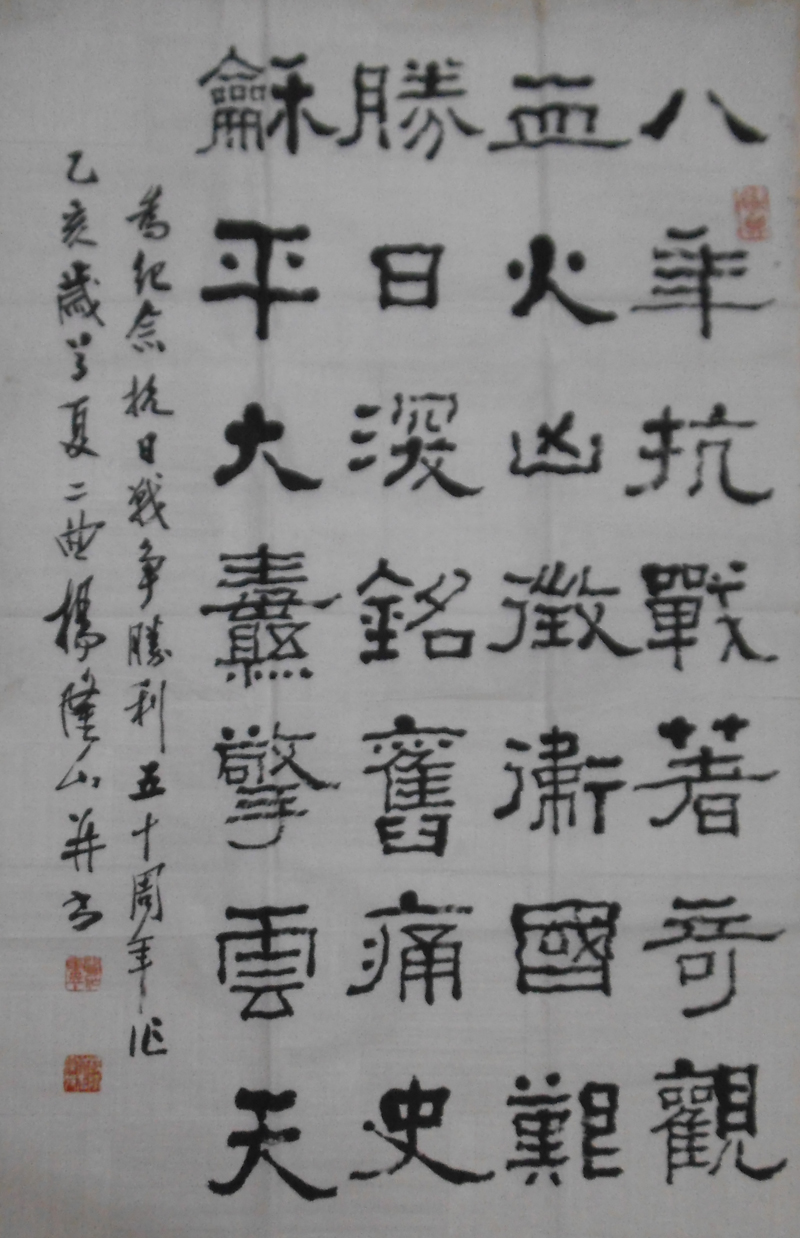 八年抗戰著奇觀
血火凶徵衛國難
勝日深銘舊痛史
龢平大纛擎雲天
為紀念抗日戰爭勝利五十周年作
乙亥歲首夏二曲楊隆山并书